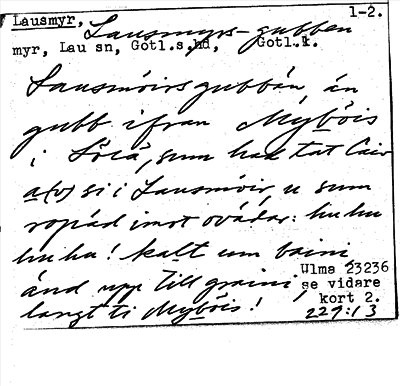 Lausmyr, Lausmyrs-gubben 1-2.
myr, Lau sn, Gotl.s.hd, Gotl.l.
Lausmóirsgubbán, án
gubb ifran Mýbóis
i Lölá, sum had tat
a(v) si i Lausmóir, u sum
ropád imot ovádár: hu hu
hu hu! kalt um baini
ánd upp till graini,
langt ti Mýbóis!
Ulma 23236
se vidare
kort 2.
229:13